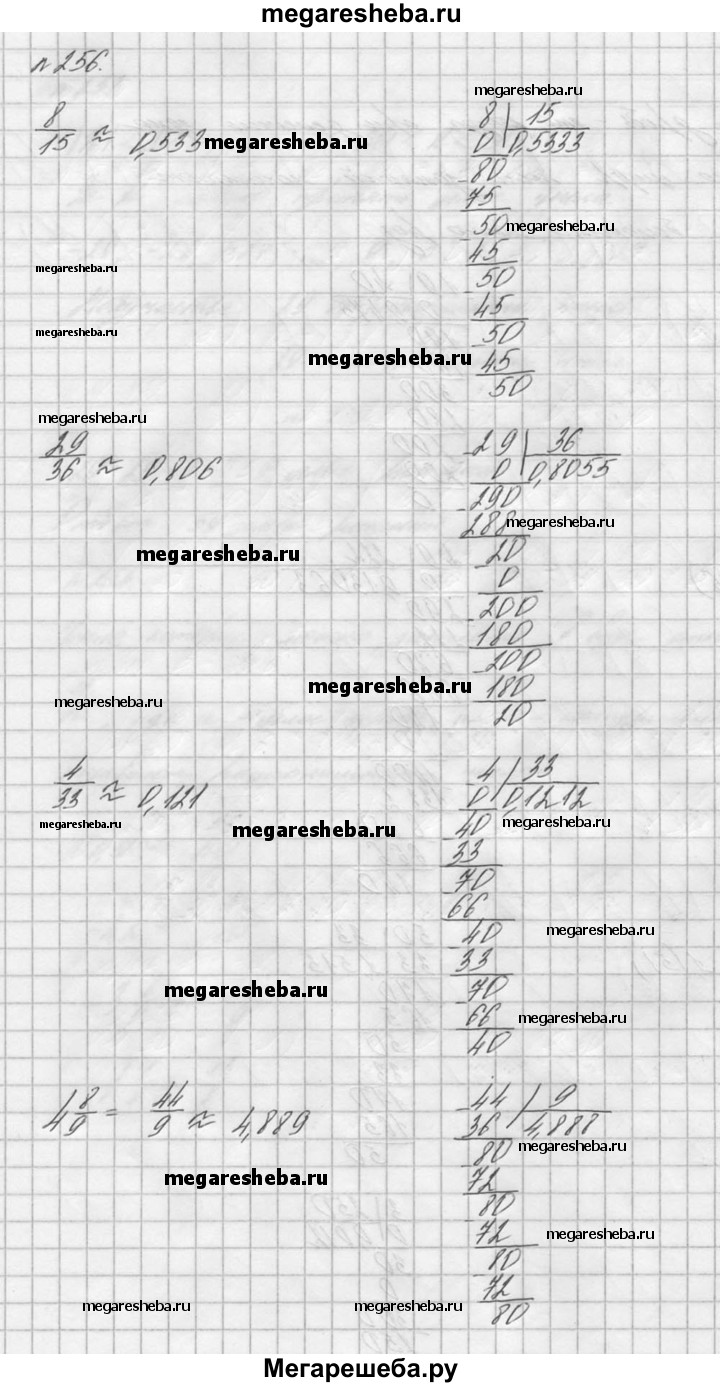 megaresheba.ru
№256.
megaresheba.ru
8/15 ≈ 0,533
megaresheba.ru
-8 | 15
0 | 0,5333
-80
75
-50
megaresheba.ru
45
-50
45
-50
45
50
megaresheba.ru
megaresheba.ru
megaresheba.ru
megaresheba.ru
29/36 ≈ 0,806
-29 | 36
0 | 0,8055
-290
288
megaresheba.ru
-20
0
-200
180
-200
180
20
megaresheba.ru
megaresheba.ru
megaresheba.ru
4/33 ≈ 0,121
-4 | 33
0 | 0,1212
-40
33
-70
66
-40
33
-70
66
40
megaresheba.ru
megaresheba.ru
megaresheba.ru
megaresheba.ru
megaresheba.ru
megaresheba.ru
4 8/9 = 44/9 ≈ 4,889
-44 | 9
36 | 4,888
-80
72
-80
72
-80
72
80
megaresheba.ru
megaresheba.ru
megaresheba.ru
megaresheba.ru
megaresheba.ru
Мегарешеба.ру